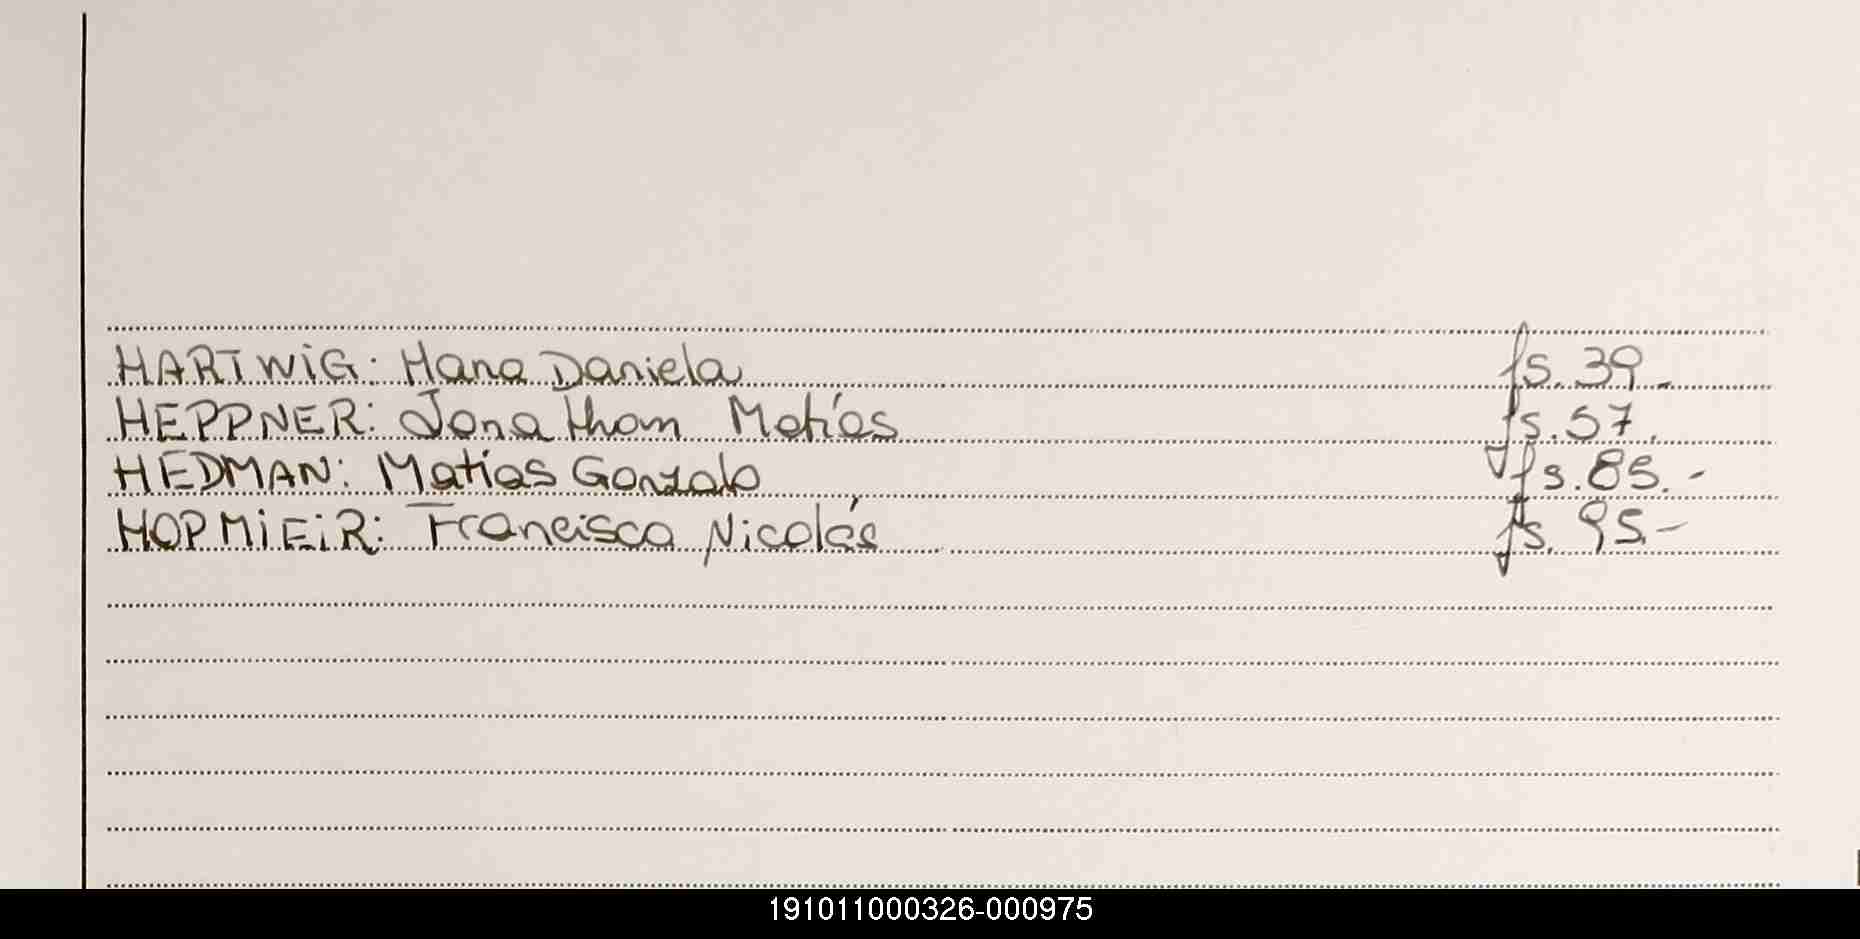 HARTWIG: Mana Daniela fs. 39.-
HEPPNER: Jonathan Matías fs. 57.
HEDMAN: Matias Gonzalo fs. 85.-
HOPMIEIR: Francisco Nicolás fs. 95.-
191011000326-000975